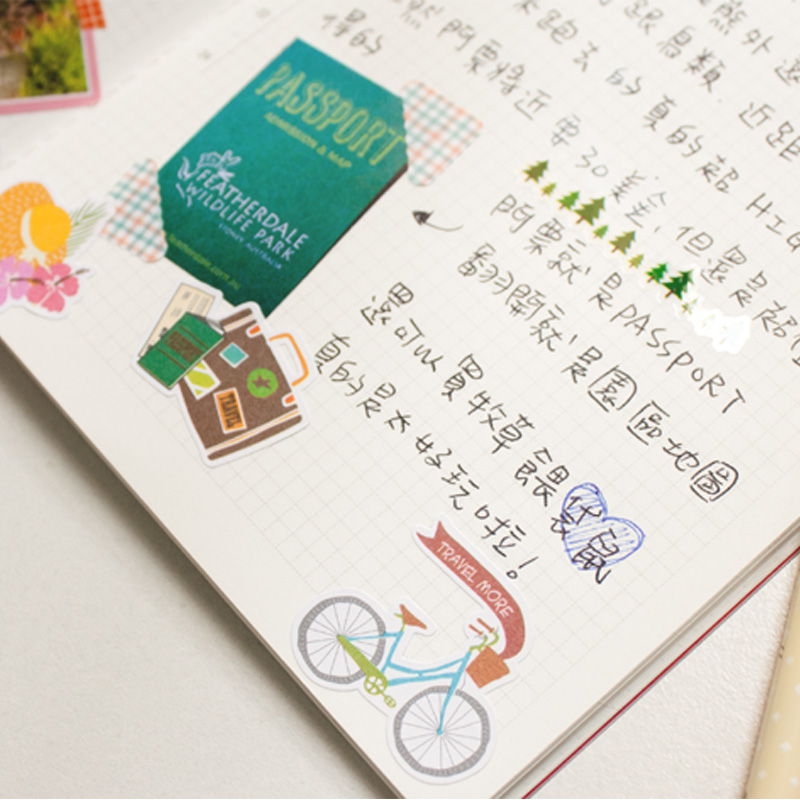 熊外還
跟鳥類 近距
來跑去 的 真的超 HIG
然 門票將近 要30美金, 但還是超值
得的
門票就是PASSPORT
翻開就是園區地圖
還可以買牧草餵袋鼠
真的是太好玩啦!
PASSPORT
ADMISSION & MAP
FEATHERDALE
WILDLIFE PARK
SYDNEY AUSTRALIA
featherdale.com.au
PASSPORT
TRAVEL
TRAVEL MORE